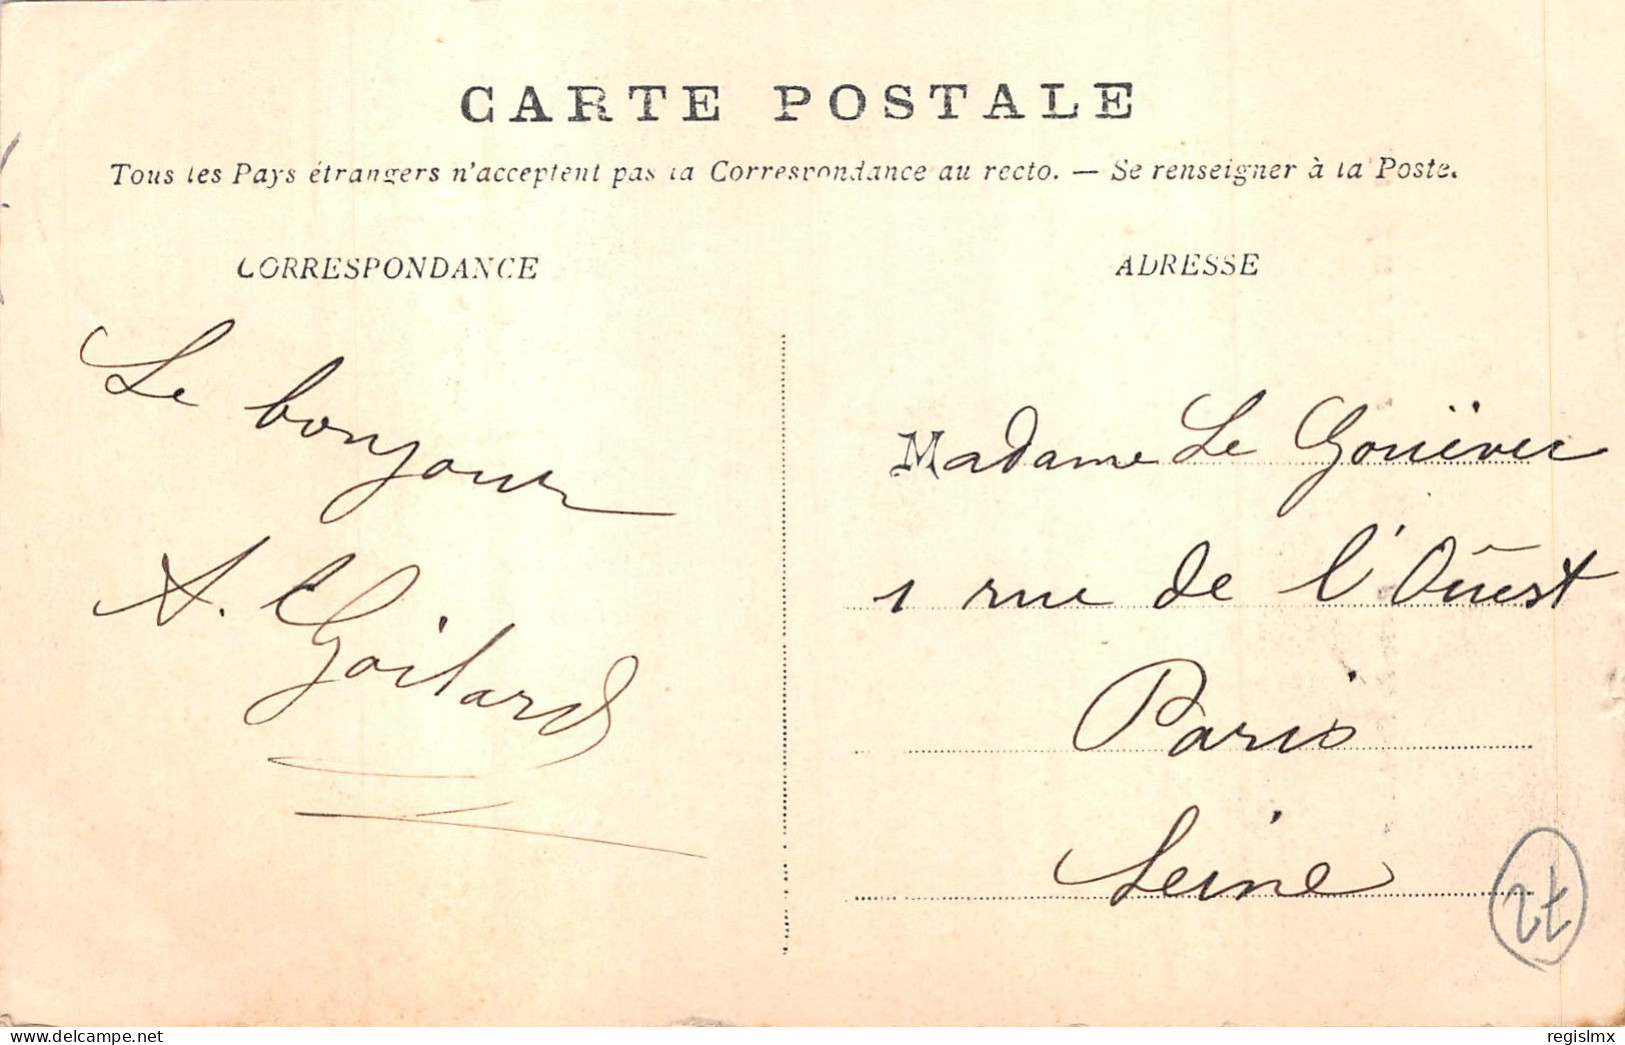 CARTE POSTALE
Tous les Pays étrangers n'acceptent pas la Correspondance au recto. — Se renseigner à la Poste.
CORRESPONDANCE
Le bonjour
A. Goilard
ADRESSE
Madame Le Gouëver
1 rue de l'Ouest
Paris
Seine
www.delcampe.net
regislmx